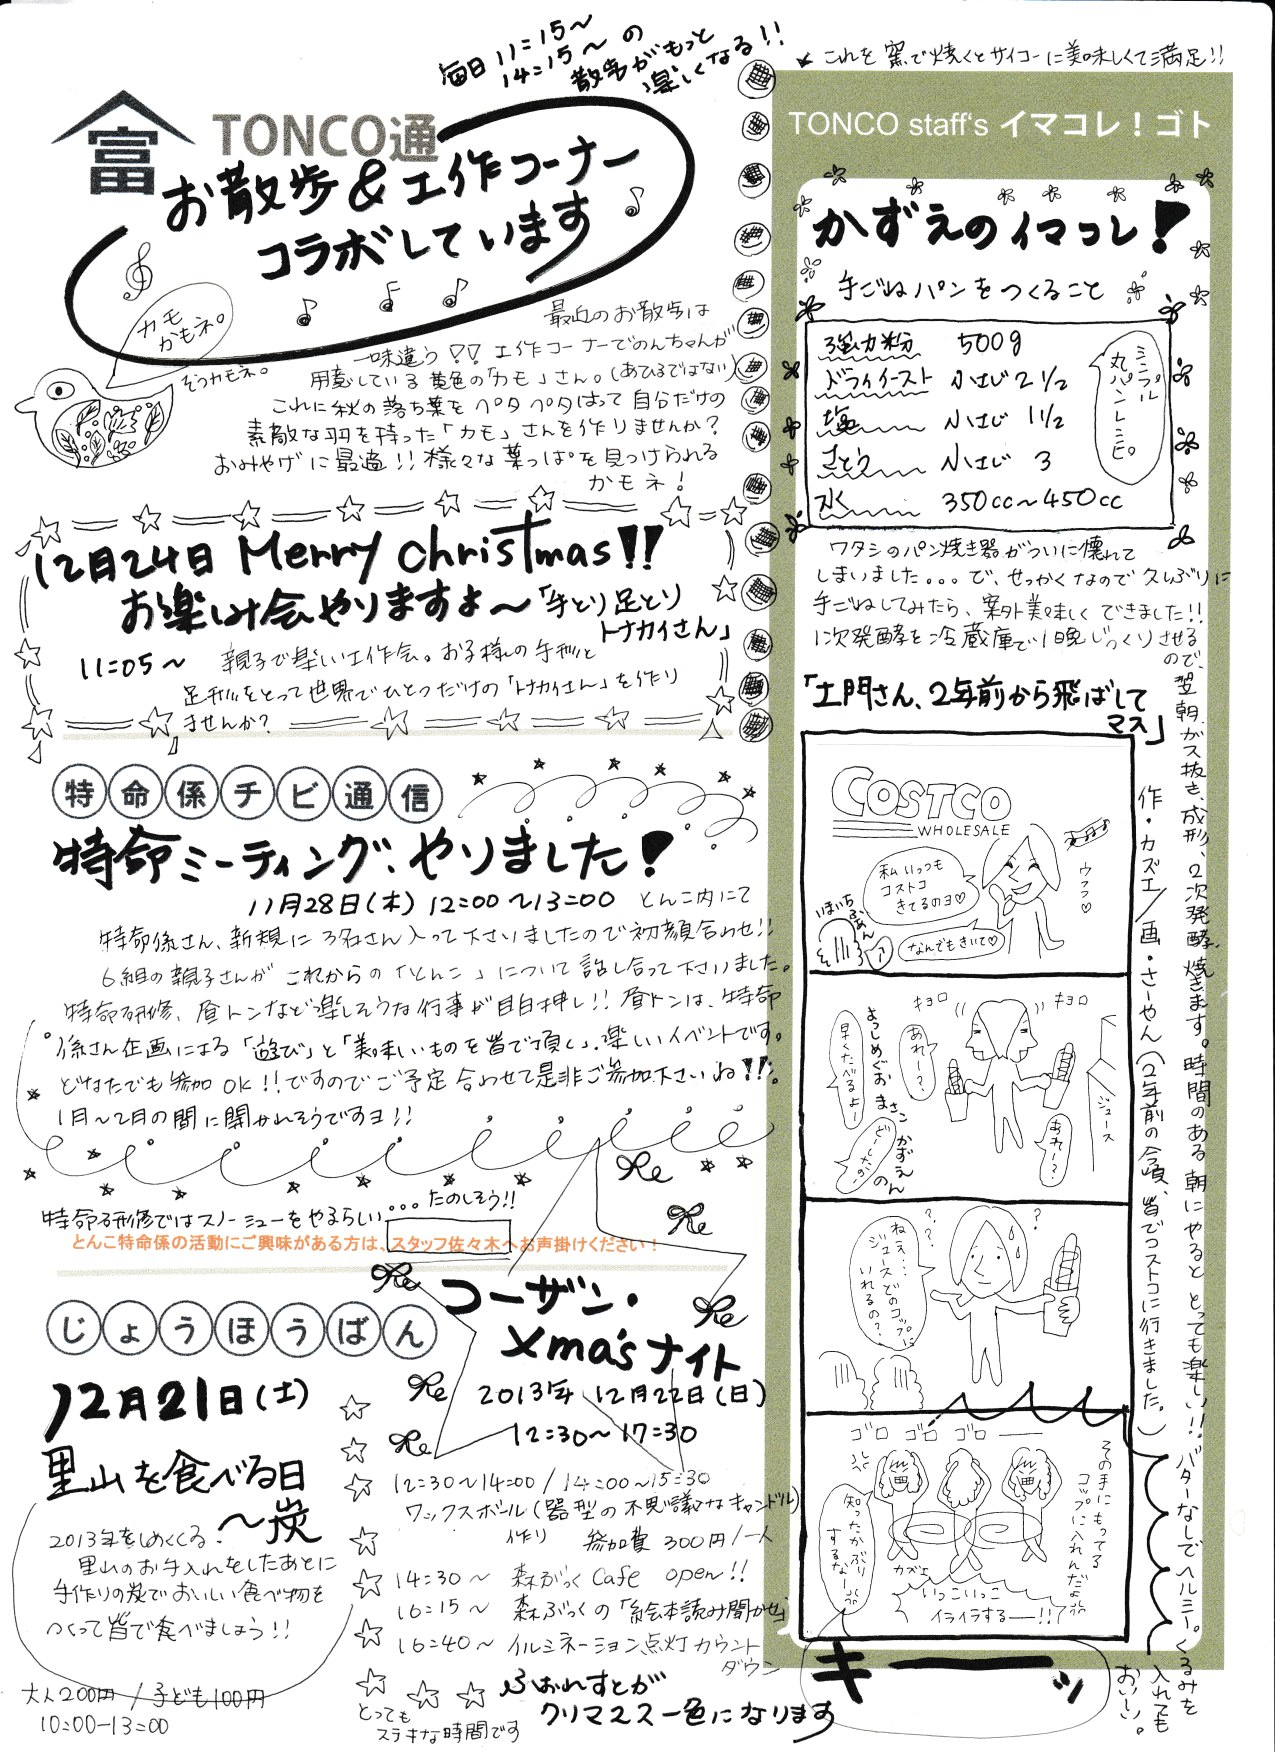 毎日 11:15〜
14:15〜の
散歩がもっと
楽しくなる!!
富
TONCO通
お散歩&工作コーナー
コラボしています
カモ
かもネ。
そうカモネ。
最近のお散歩は
一味違う!!工作コーナーでのんちゃんが
用意している黄色の「カモ」さん。(あひるではない)
これに秋の落ち葉をペタペタはって自分だけの
素敵な羽を持った「カモ」さんを作りませんか?
おみやげに最適!!様々な葉っぱを見つけられる
かモネ!
12月24日 Merry Christmas!!
お楽しみ会やりますよ〜「手とり足とり
トナカイさん」
11:05〜 親子で楽しい工作会。お子様の手形と
足形をとって世界でひとつだけの「トナカイさん」を作り
ませんか?
特命係チビ通信
特命ミーティング、やりました!
11月28日(木) 12:00〜13:00 とんこ内にて
特命係さん、新規に3名さん入って下さいましたので初顔合わせ!!
6組の親子さんがこれからの「とんこ」について話し合って下さいました。
特命研修、昼トンなど楽しそうな行事が目白押し!!昼トンは、特命
係さん企画による「遊び」と「美味しいものを皆で頂く」、楽しいイベントです。
どなたでも参加OK!!ですのでご予定合わせて是非ご参加下さいね!!
1月〜2月の間に開かれそうですヨ!!
特命研修ではスノーシューをやるらしい...たのしそう!!
とんこ特命係の活動にご興味がある方は、スタッフ佐々木へお声掛けください!
じょうほうばん
12月21日(土)
里山を食べる日
〜炭
2013年をしめくくる
里山のお手入れをしたあとに
手作りの炭でおいしい食べ物を
つくって皆で食べましょう!!
大人200円/子ども100円
10:00-13:00
コーザン・
Xma's ナイト
2013年 12月22日(日)
12:30〜17:30
12:30〜14:00/14:00〜15:30
ワックスボール(器型の不思議なキャンドル)
作り 参加費 300円/一人
14:30〜 森ぶっく Cafe open!!
16:15〜 森ぶっくの「絵本読み聞かせ」
16:40〜 イルミネーション点灯カウント
ダウン
ふぉれすとが
クリスマス一色になります
とっても
ステキな時間です
これを窯で焼くとサイコーに美味しくて満足!!
TONCO staff's イマコレ!ゴト
かずえのイマコレ!
手ごねパンをつくること
強力粉 500g
ドライイースト 小さじ 2 1/2
塩 小さじ 1 1/2
さとう 小さじ 3
水 350cc〜450cc
シンプル
丸パンレシピ。
ワタシのパン焼き器がついに壊れて
しまいました...で、せっかくなので久しぶりに
手ごねしてみたら、案外美味しくできました!!
1次発酵を冷蔵庫で1晩じっくりさせる
ので、
翌朝ガス抜き、成形、2次発酵、焼きます。時間のある朝にやるととっても楽しい!!
バターなしでヘルシー。くるみを
入れても
おいしい。
「土門さん、2年前から飛ばして
マス」
作・カズエ/画・さーやん(2年前の今頃、皆でコストコに行きました。)
COSTCO
WHOLESALE
私いっつも
コストコ
きてるのヨ♡
ウフフ♡
なんでもきいて♡
いまいち
ふあん
キョロ
キョロ
あれー?
あれー?
ジュース
よっしめぐお
まさこ
かずえん
早くたべるよー
どしたの
?
?
?
ねぇ...
ジュースどのコップに
いれるの?
ゴロ ゴロ ゴロ
その手にもってる
コップに入れんだよ
知ったかぶり
するなー
カズエ
いっこいっこ
イライラするー!!
キーーッ